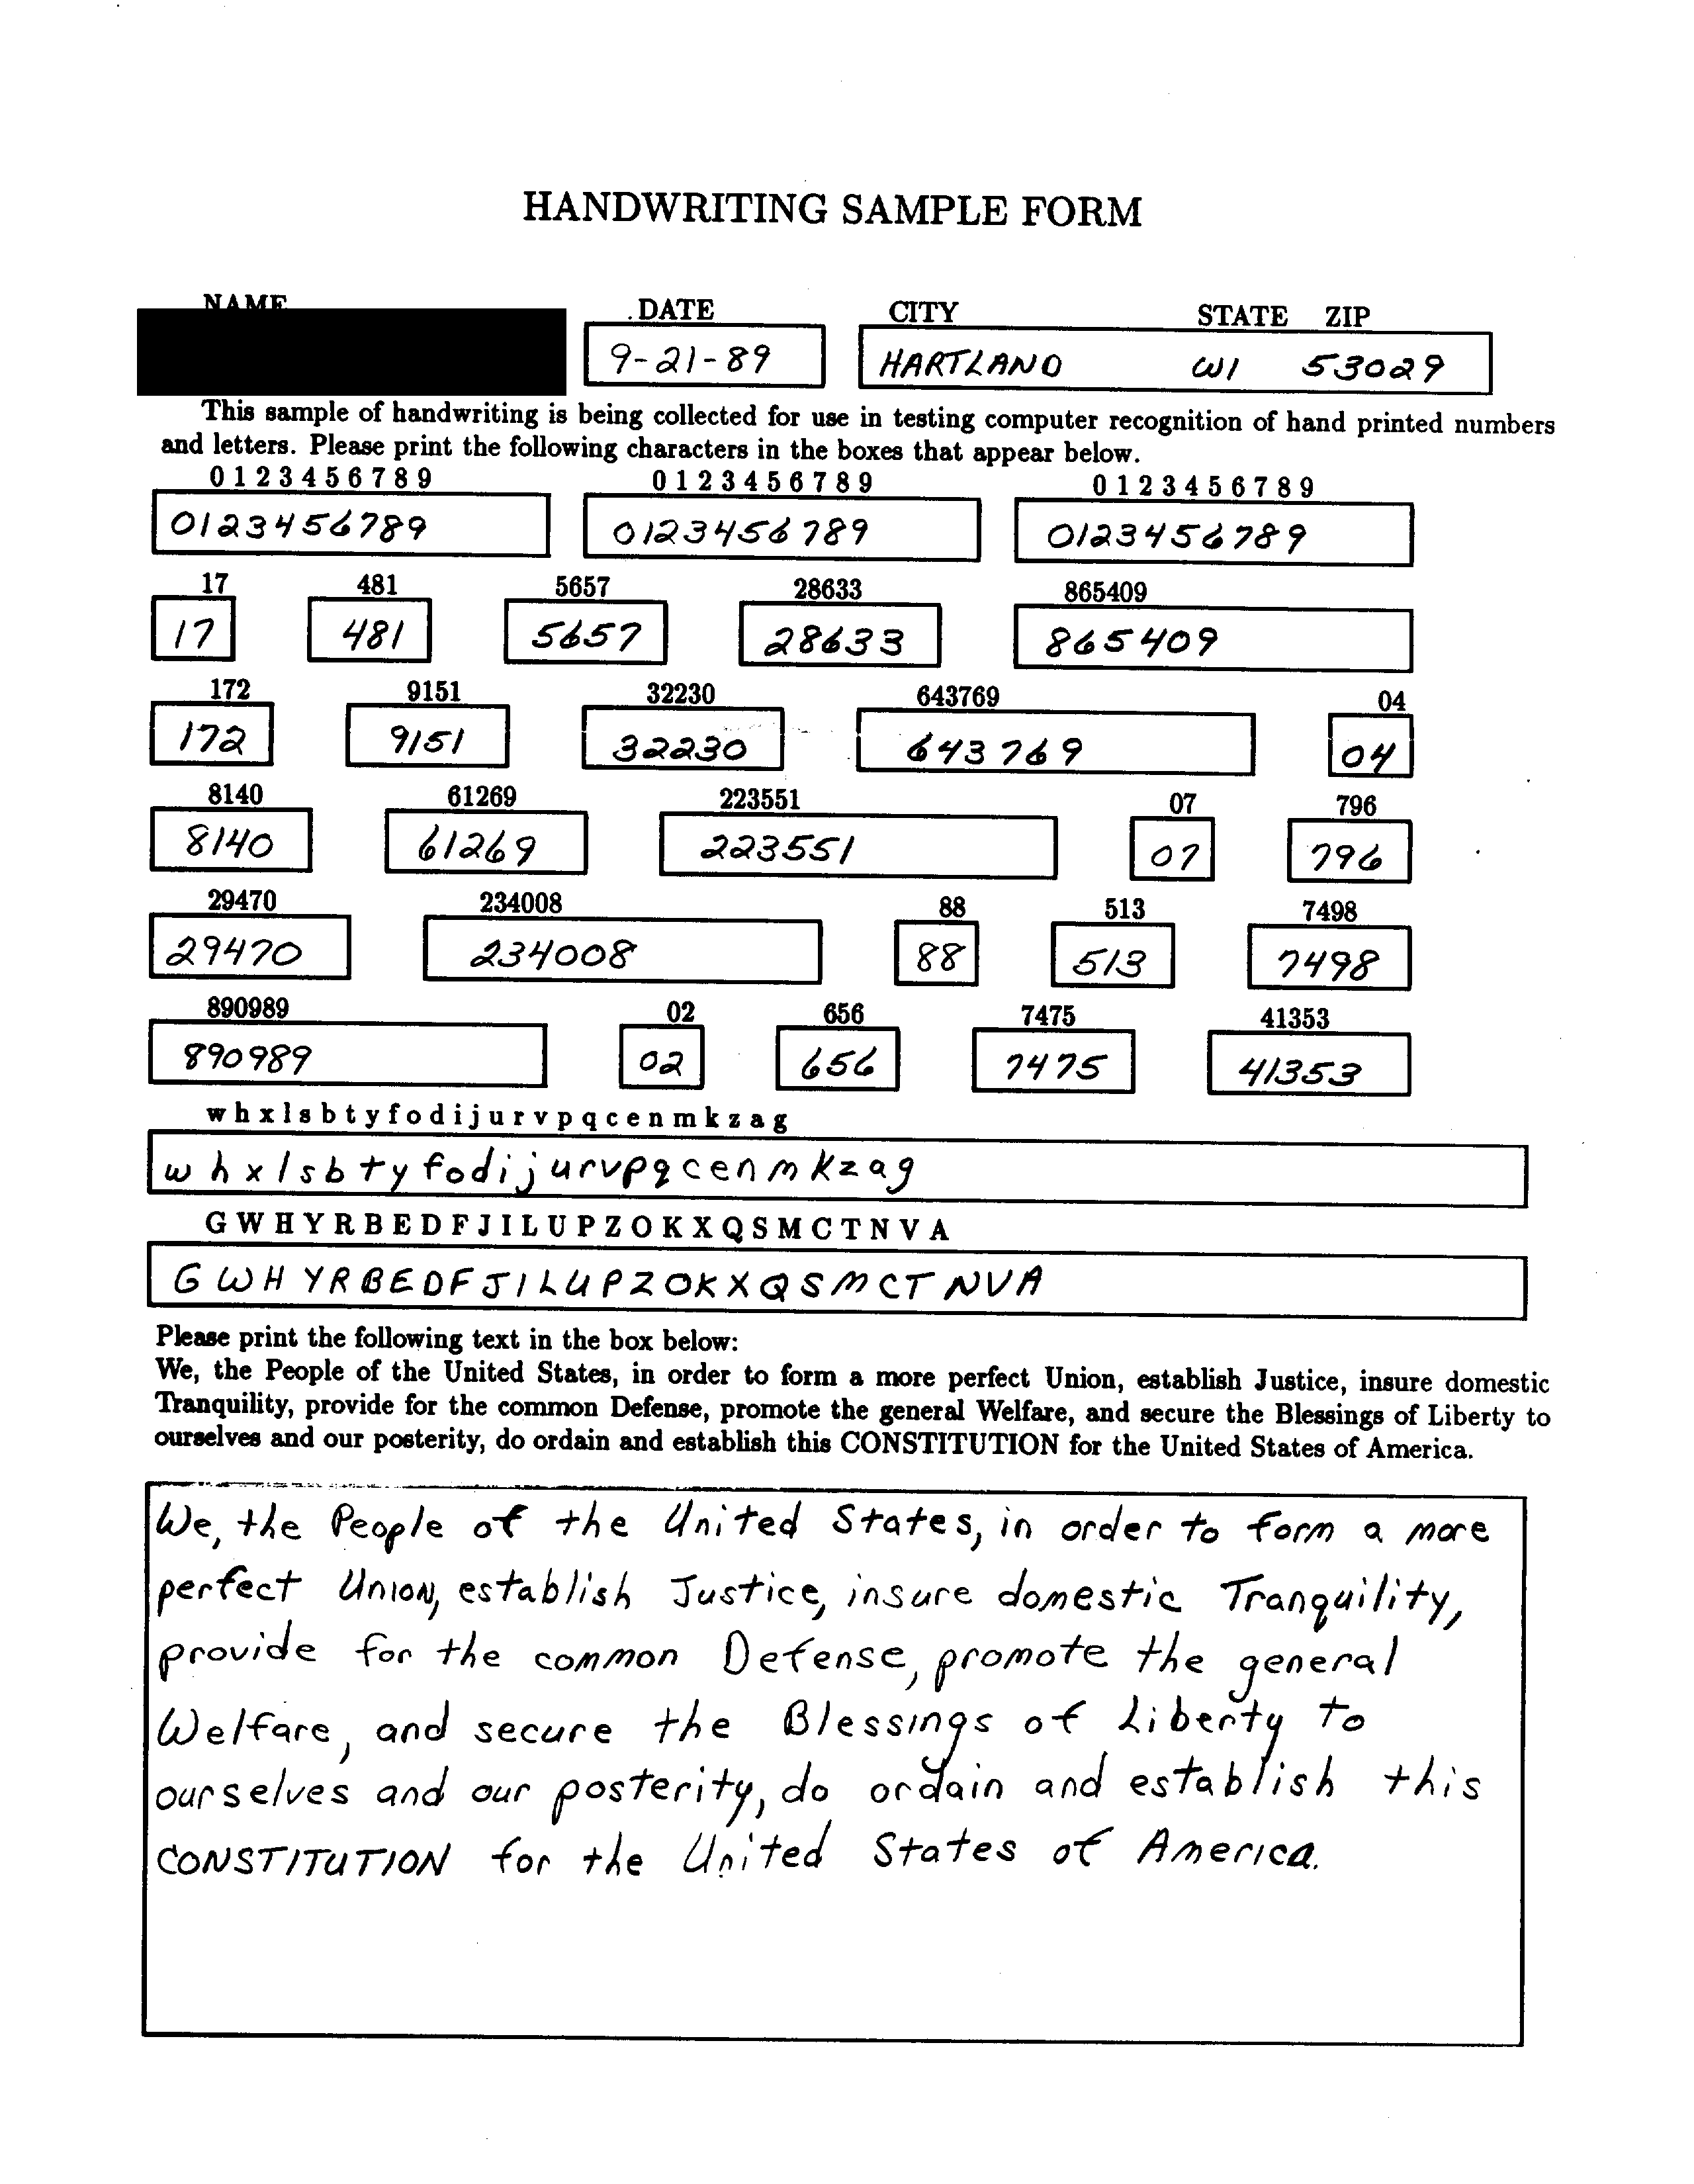 HANDWRITING SAMPLE FORM
NAME DATE CITY STATE ZIP
9-21-89 HARTLAND WI 53029
This sample of handwriting is being collected for use in testing computer recognition of hand printed numbers
and letters. Please print the following characters in the boxes that appear below.
0 1 2 3 4 5 6 7 8 9 0 1 2 3 4 5 6 7 8 9 0 1 2 3 4 5 6 7 8 9
0123456789 0123456789 0123456789
17 481 5657 28633 865409
17 481 5657 28633 865409
172 9151 32230 643769 04
172 9151 32230 643769 04
8140 61269 223551 07 796
8140 61269 223551 07 796
29470 234008 88 513 7498
29470 234008 88 513 7498
890989 02 656 7475 41353
890989 02 656 7475 41353
w h x l s b t y f o d i j u r v p q c e n m k z a g
w h x l s b t y f o d i j u r v p q c e n m k z a g
G W H Y R B E D F J I L U P Z O K X Q S M C T N V A
G W H Y R B E D F J I L U P Z O K X Q S M C T N V A
Please print the following text in the box below:
We, the People of the United States, in order to form a more perfect Union, establish Justice, insure domestic
Tranquility, provide for the common Defense, promote the general Welfare, and secure the Blessings of Liberty to
ourselves and our posterity, do ordain and establish this CONSTITUTION for the United States of America.
We, the People of the United States, in order to form a more
perfect Union, establish Justice, insure domestic Tranquility,
provide for the common Defense, promote the general
Welfare, and secure the Blessings of Liberty to
ourselves and our posterity, do ordain and establish this
CONSTITUTION for the United States of America.